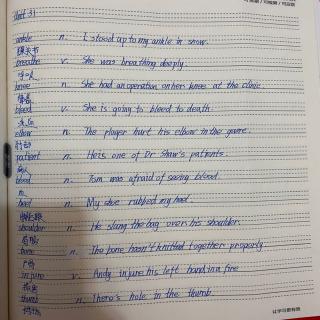 Unit 31
ankle n. I stood up to my ankle in snow.
踝关节
breathe v. She was breathing deeply.
呼吸
knee n. She had an operation on her knee at the clinic.
膝盖
bleed v. She is going to bleed to death.
流血
elbow n. The player hurt his elbow in the game.
patient n. He is one of Dr Shaw's patients.
病人
blood n. Tom was afraid of seeing blood.
血
heel n. My shoe rubbed my heel.
shoulder n. He slung the bag over his shoulder.
肩膀
bone n. The bone hasn't knitted together properly.
injure v. Andy injure his left hand in a fire
thumb n. There's hole in the thumb.
拇指
让学习更有效